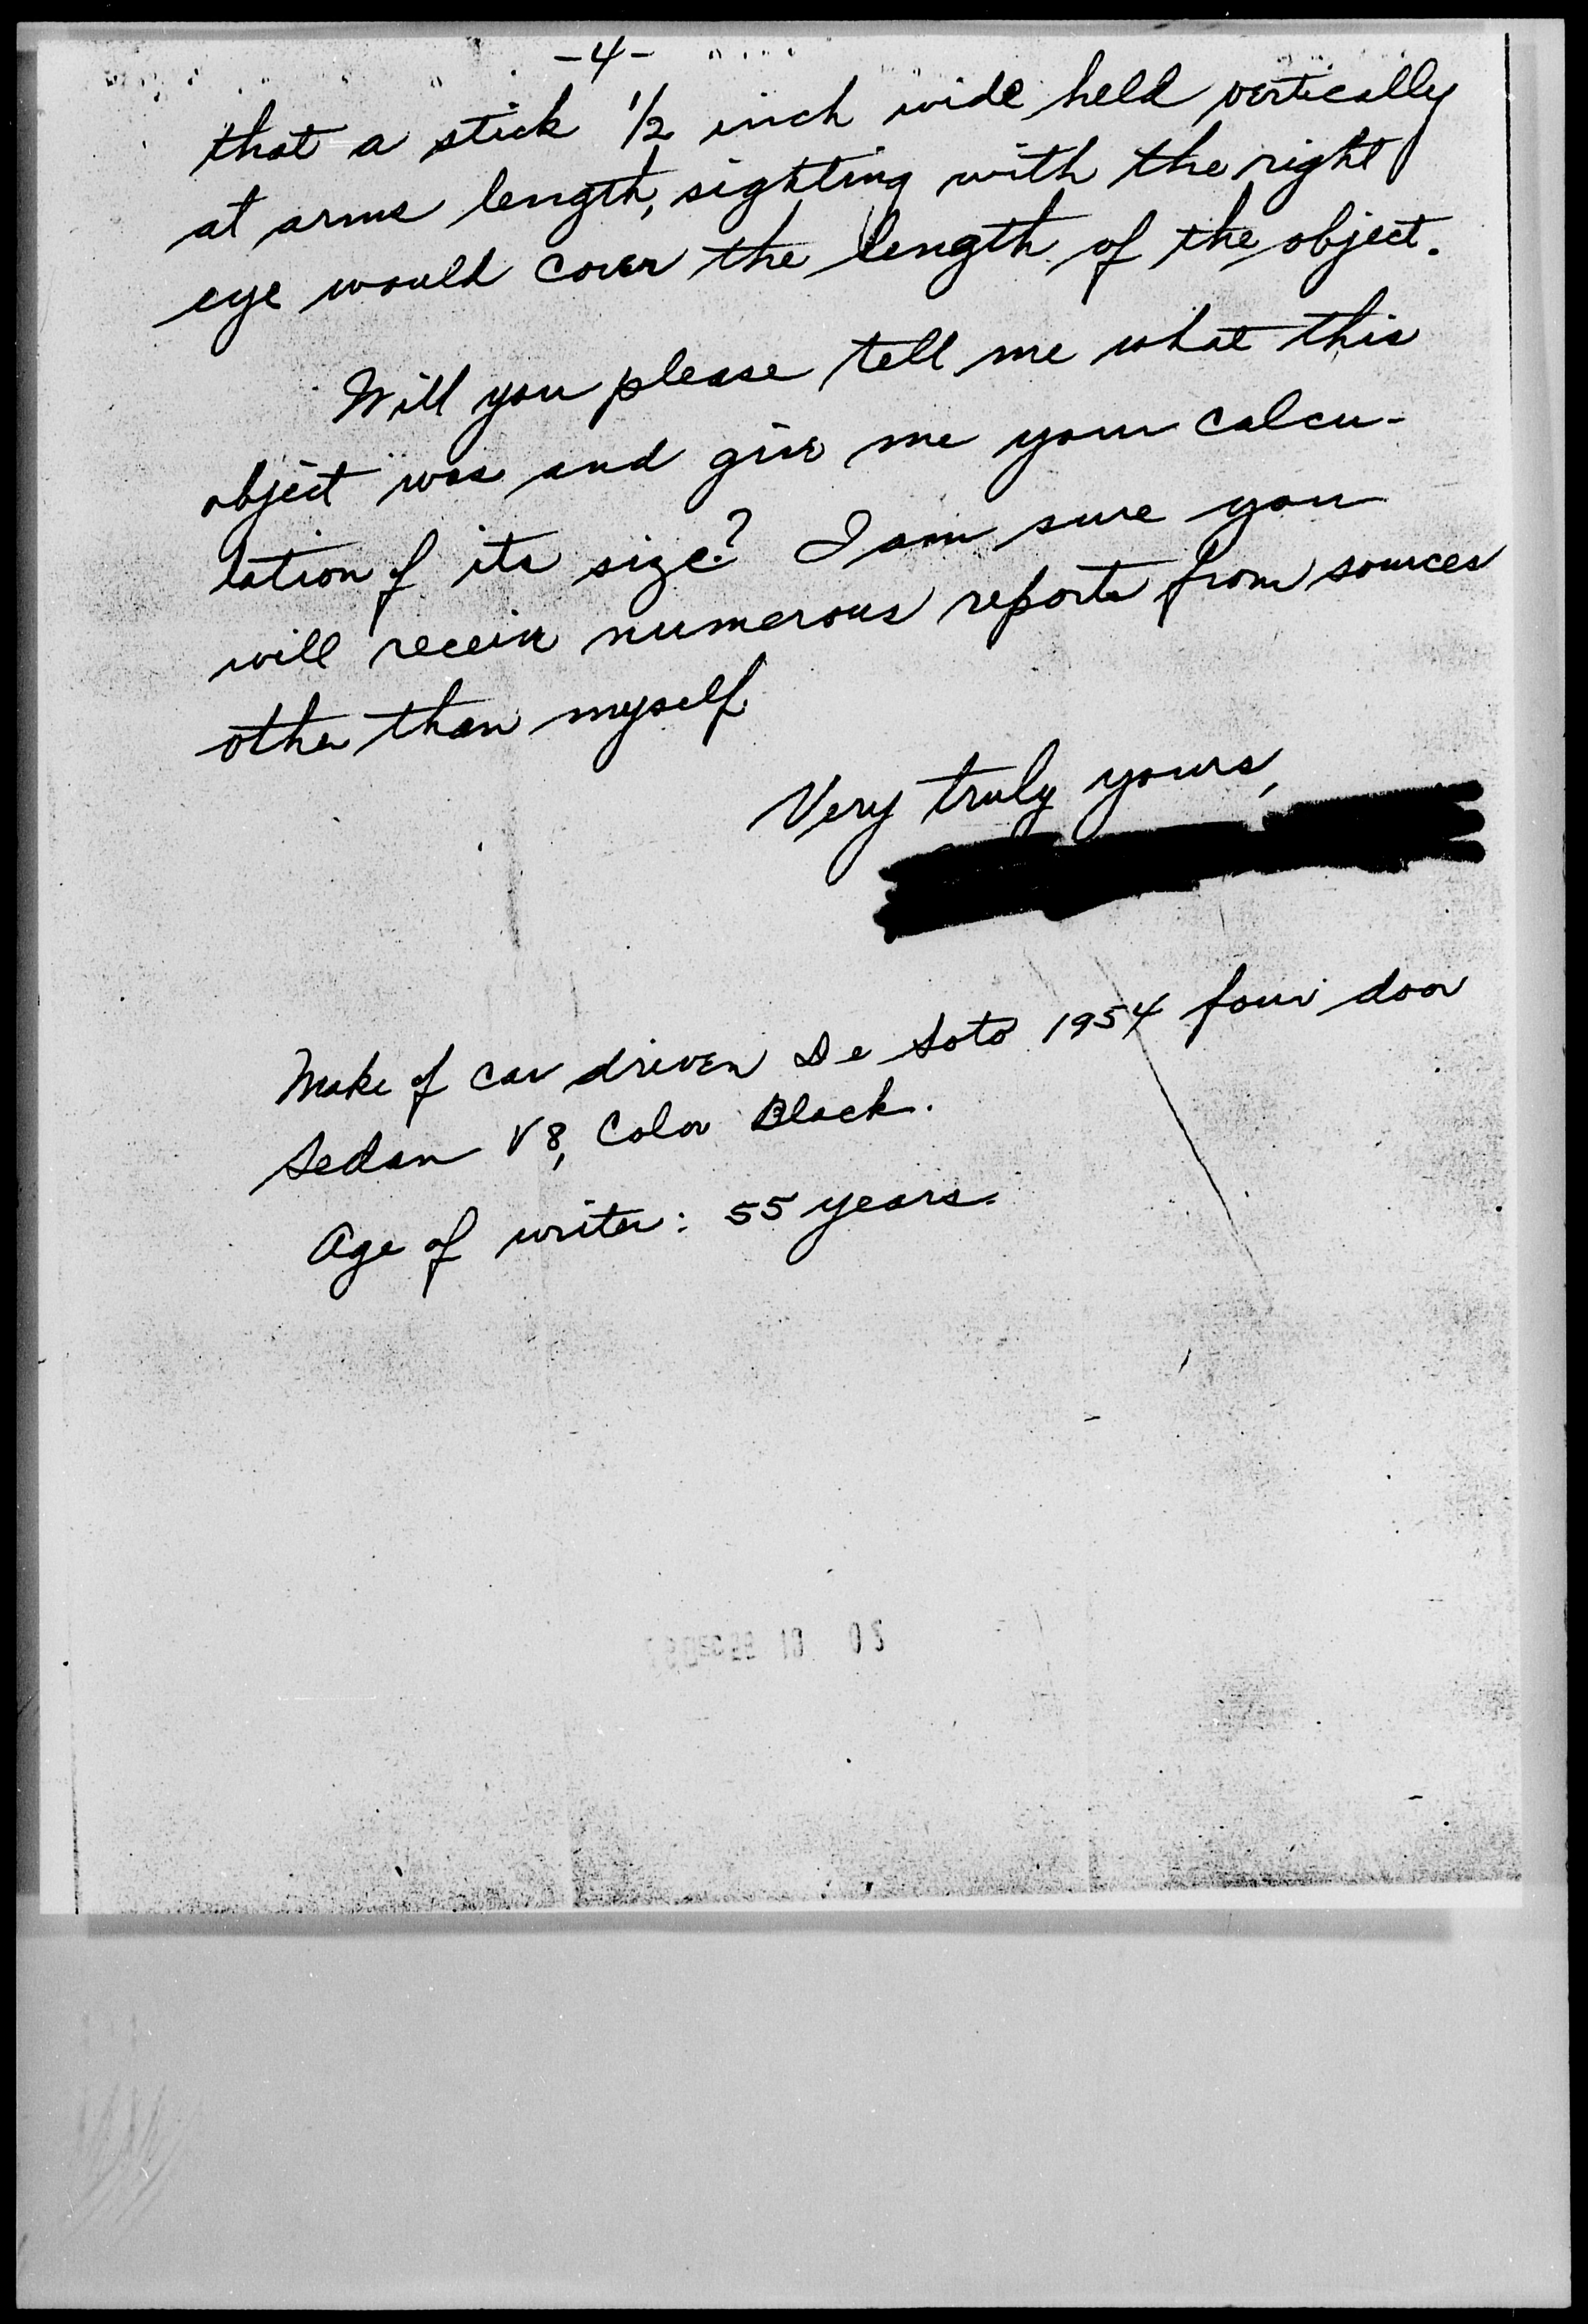 -4-
that a stick 1/2 inch wide held vertically
at arms length, sighting with the right
eye would cover the length of the object.
Will you please tell me what this
object was and give me your calcu-
lation of its size? I am sure you
will receive numerous reports from sources
other than myself
Very truly yours,
Make of car driven De Soto 1954 four door
Sedan V8, Color Black.
Age of writer: 55 years.
10 02